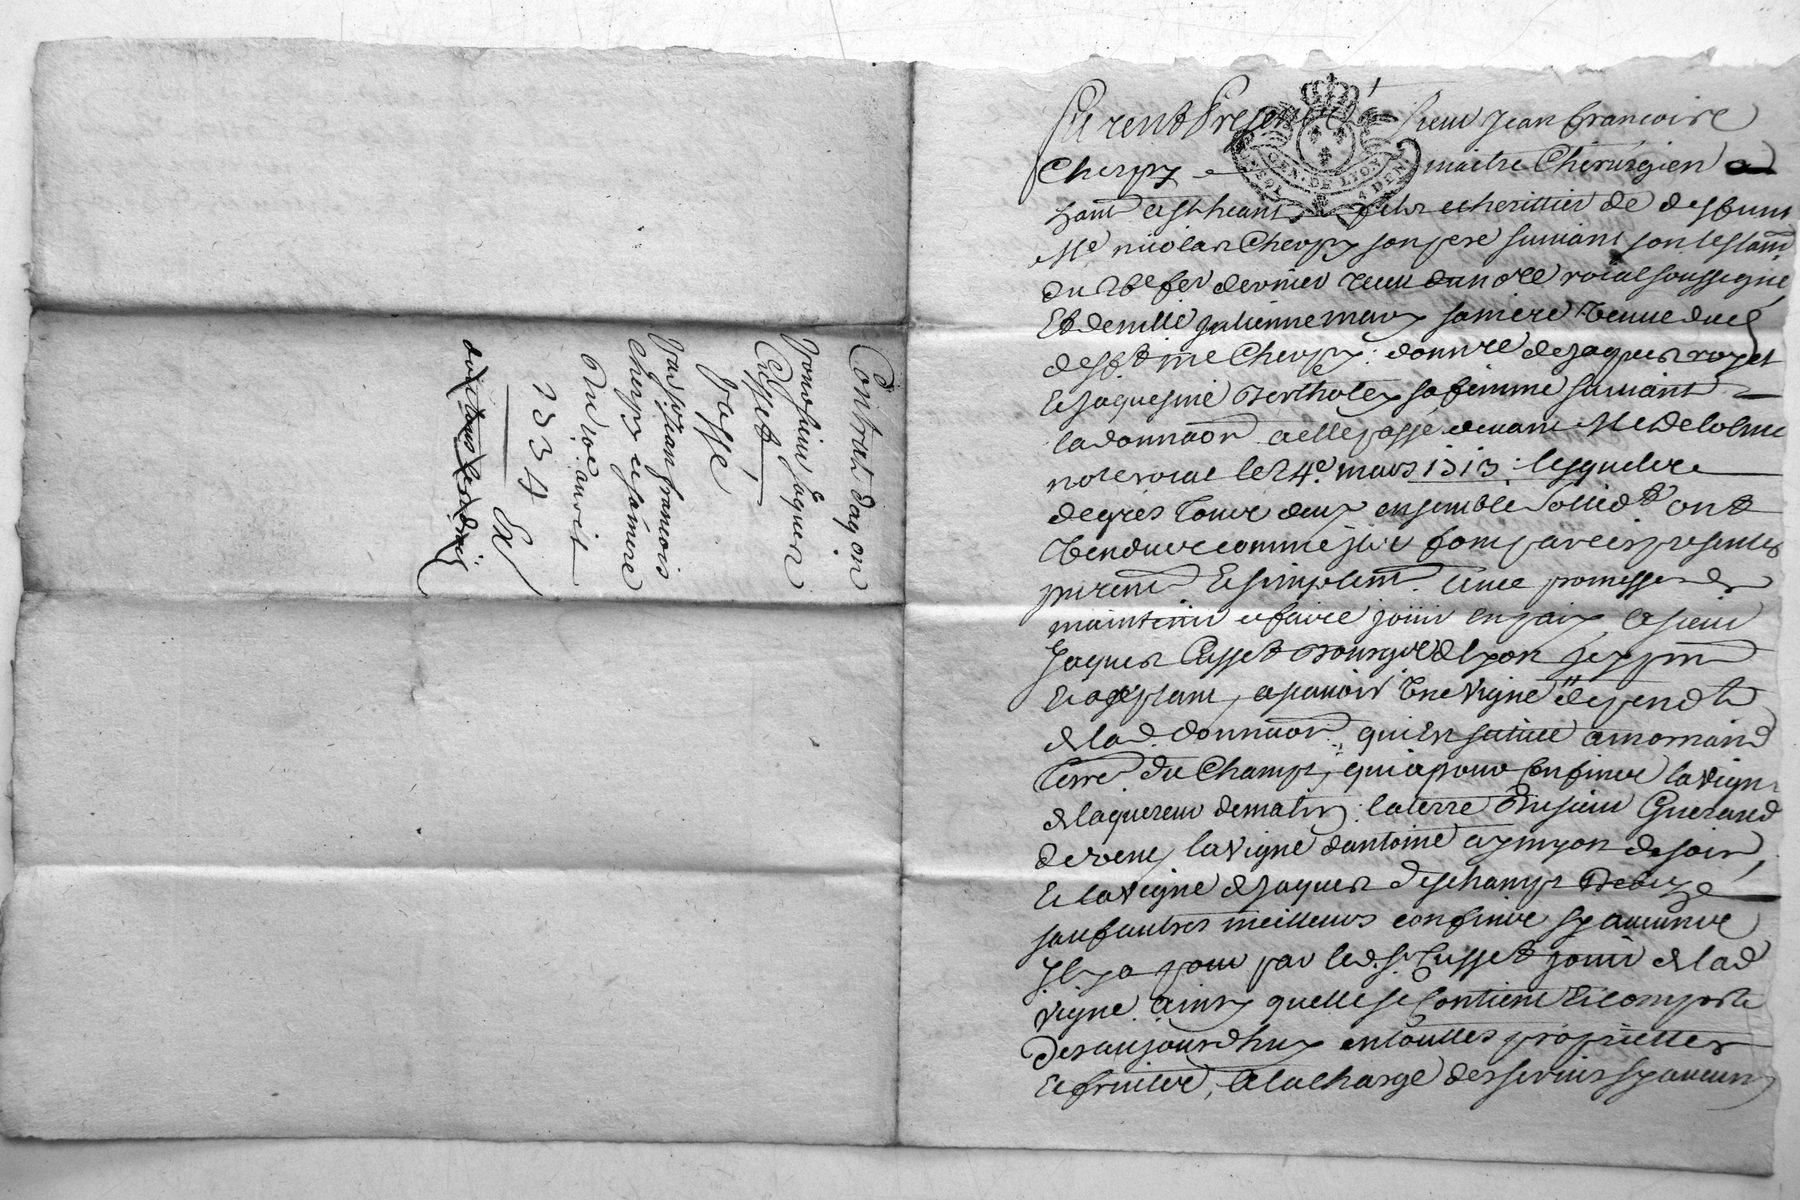 Contrat daqon
pour sieur Jaques
Cusset
passé
par sr jean francois
cherpy et sa mere
du 10e avril
1734
Ex
Furent Presents sieur Jean francoire
Cherpy maitre Chirurgien
fils et herittier de deffunt
Me nicolas Cherpy son pere suivant son testamt
du fev dernier receu dun nore roial soussigné
Et demlle julienne marx sa mere veuve dud
deft me Cherpy : donnre de jaques royet
et jaquesme Bertholey sa femme suivant
la donnaon a elle passé devant Me Delolme
nore roial le 24e mars 1713 : lesquelve
degrés tous deux ensemble sollidt ont
vendu comme jlve font par ces presentes
puremt et simplemt avec promesse de
maintenir et faire jouir en paix le sieur
Jaques Cusset Bourgois de lyon jcy pnt
et acceptant, a scavoir Une Vigne dependte
de lad. donnaon, qui est scituée a mornand
terre du Champ, qui a pour confinve la vigne
de laquereur de matin, la terre du sieur Guerand
de vent, la vigne dantoine aymyon de soir,
et la vigne de jaques deschamps De bize
sauf autres meilleurs confinve sy aucunve
jl y a pour par led. sr Cusset jouir de lad
vigne ainsy quelle se contient et comporte
des aujourdhuy en touttes proprietter
et fruitve, a la charge des servis sy aucuns